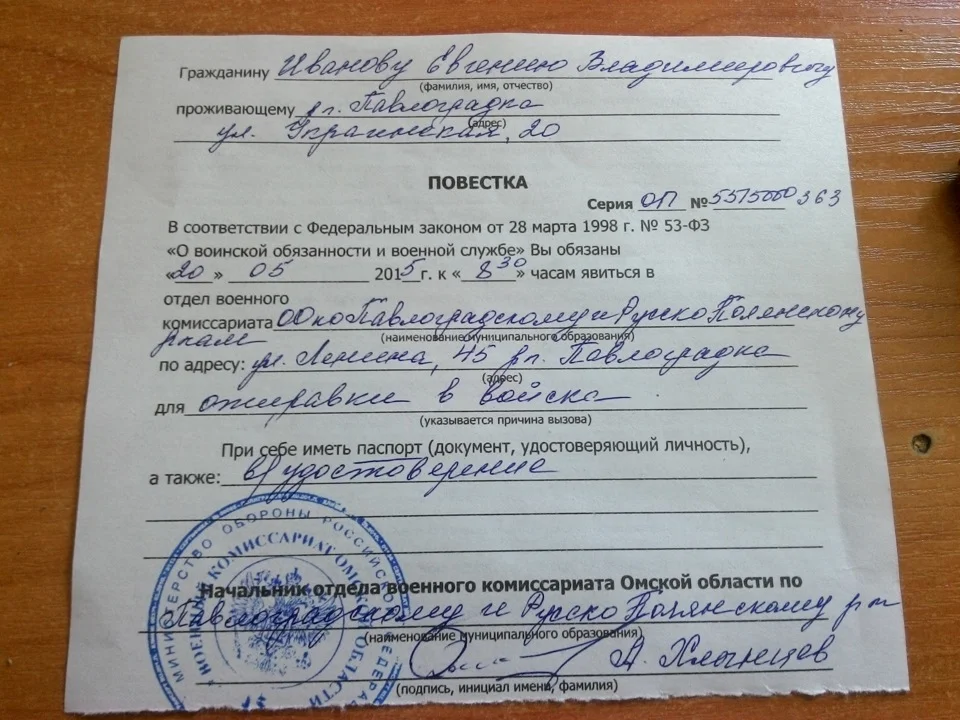 Гражданину Иванову Евгению Владимировичу
(фамилия, имя, отчество)
проживающему р.п. Павлоградка
(адрес)
ул. Украинская, 20
ПОВЕСТКА
Серия ОП №
В соответствии с Федеральным законом от 28 марта 1998 г. № 53-ФЗ
«О воинской обязанности и военной службе» Вы обязаны
«20» 05 2015 г. к «8 30» часам явиться в
отдел военного
комиссариата ОО по Павлоградскому и Русско Полянскому
р-нам
(наименование муниципального образования)
по адресу: ул. Ленина, 45 р.п. Павлоградка
(адрес)
для отправки в войска
(указывается причина вызова)
При себе иметь паспорт (документ, удостоверяющий личность),
а также: удостоверение
МИНИСТЕРСТВО ОБОРОНЫ РОССИЙСКОЙ ФЕДЕРА
ВОЕННЫЙ КОМИССАРИАТ ОМСКОЙ ОБЛАСТИ
Начальник отдела военного комиссариата Омской области по
Павлоградскому и Русско Полянскому
(наименование муниципального образования)
А. Хлынцов
(подпись, инициал имени, фамилия)